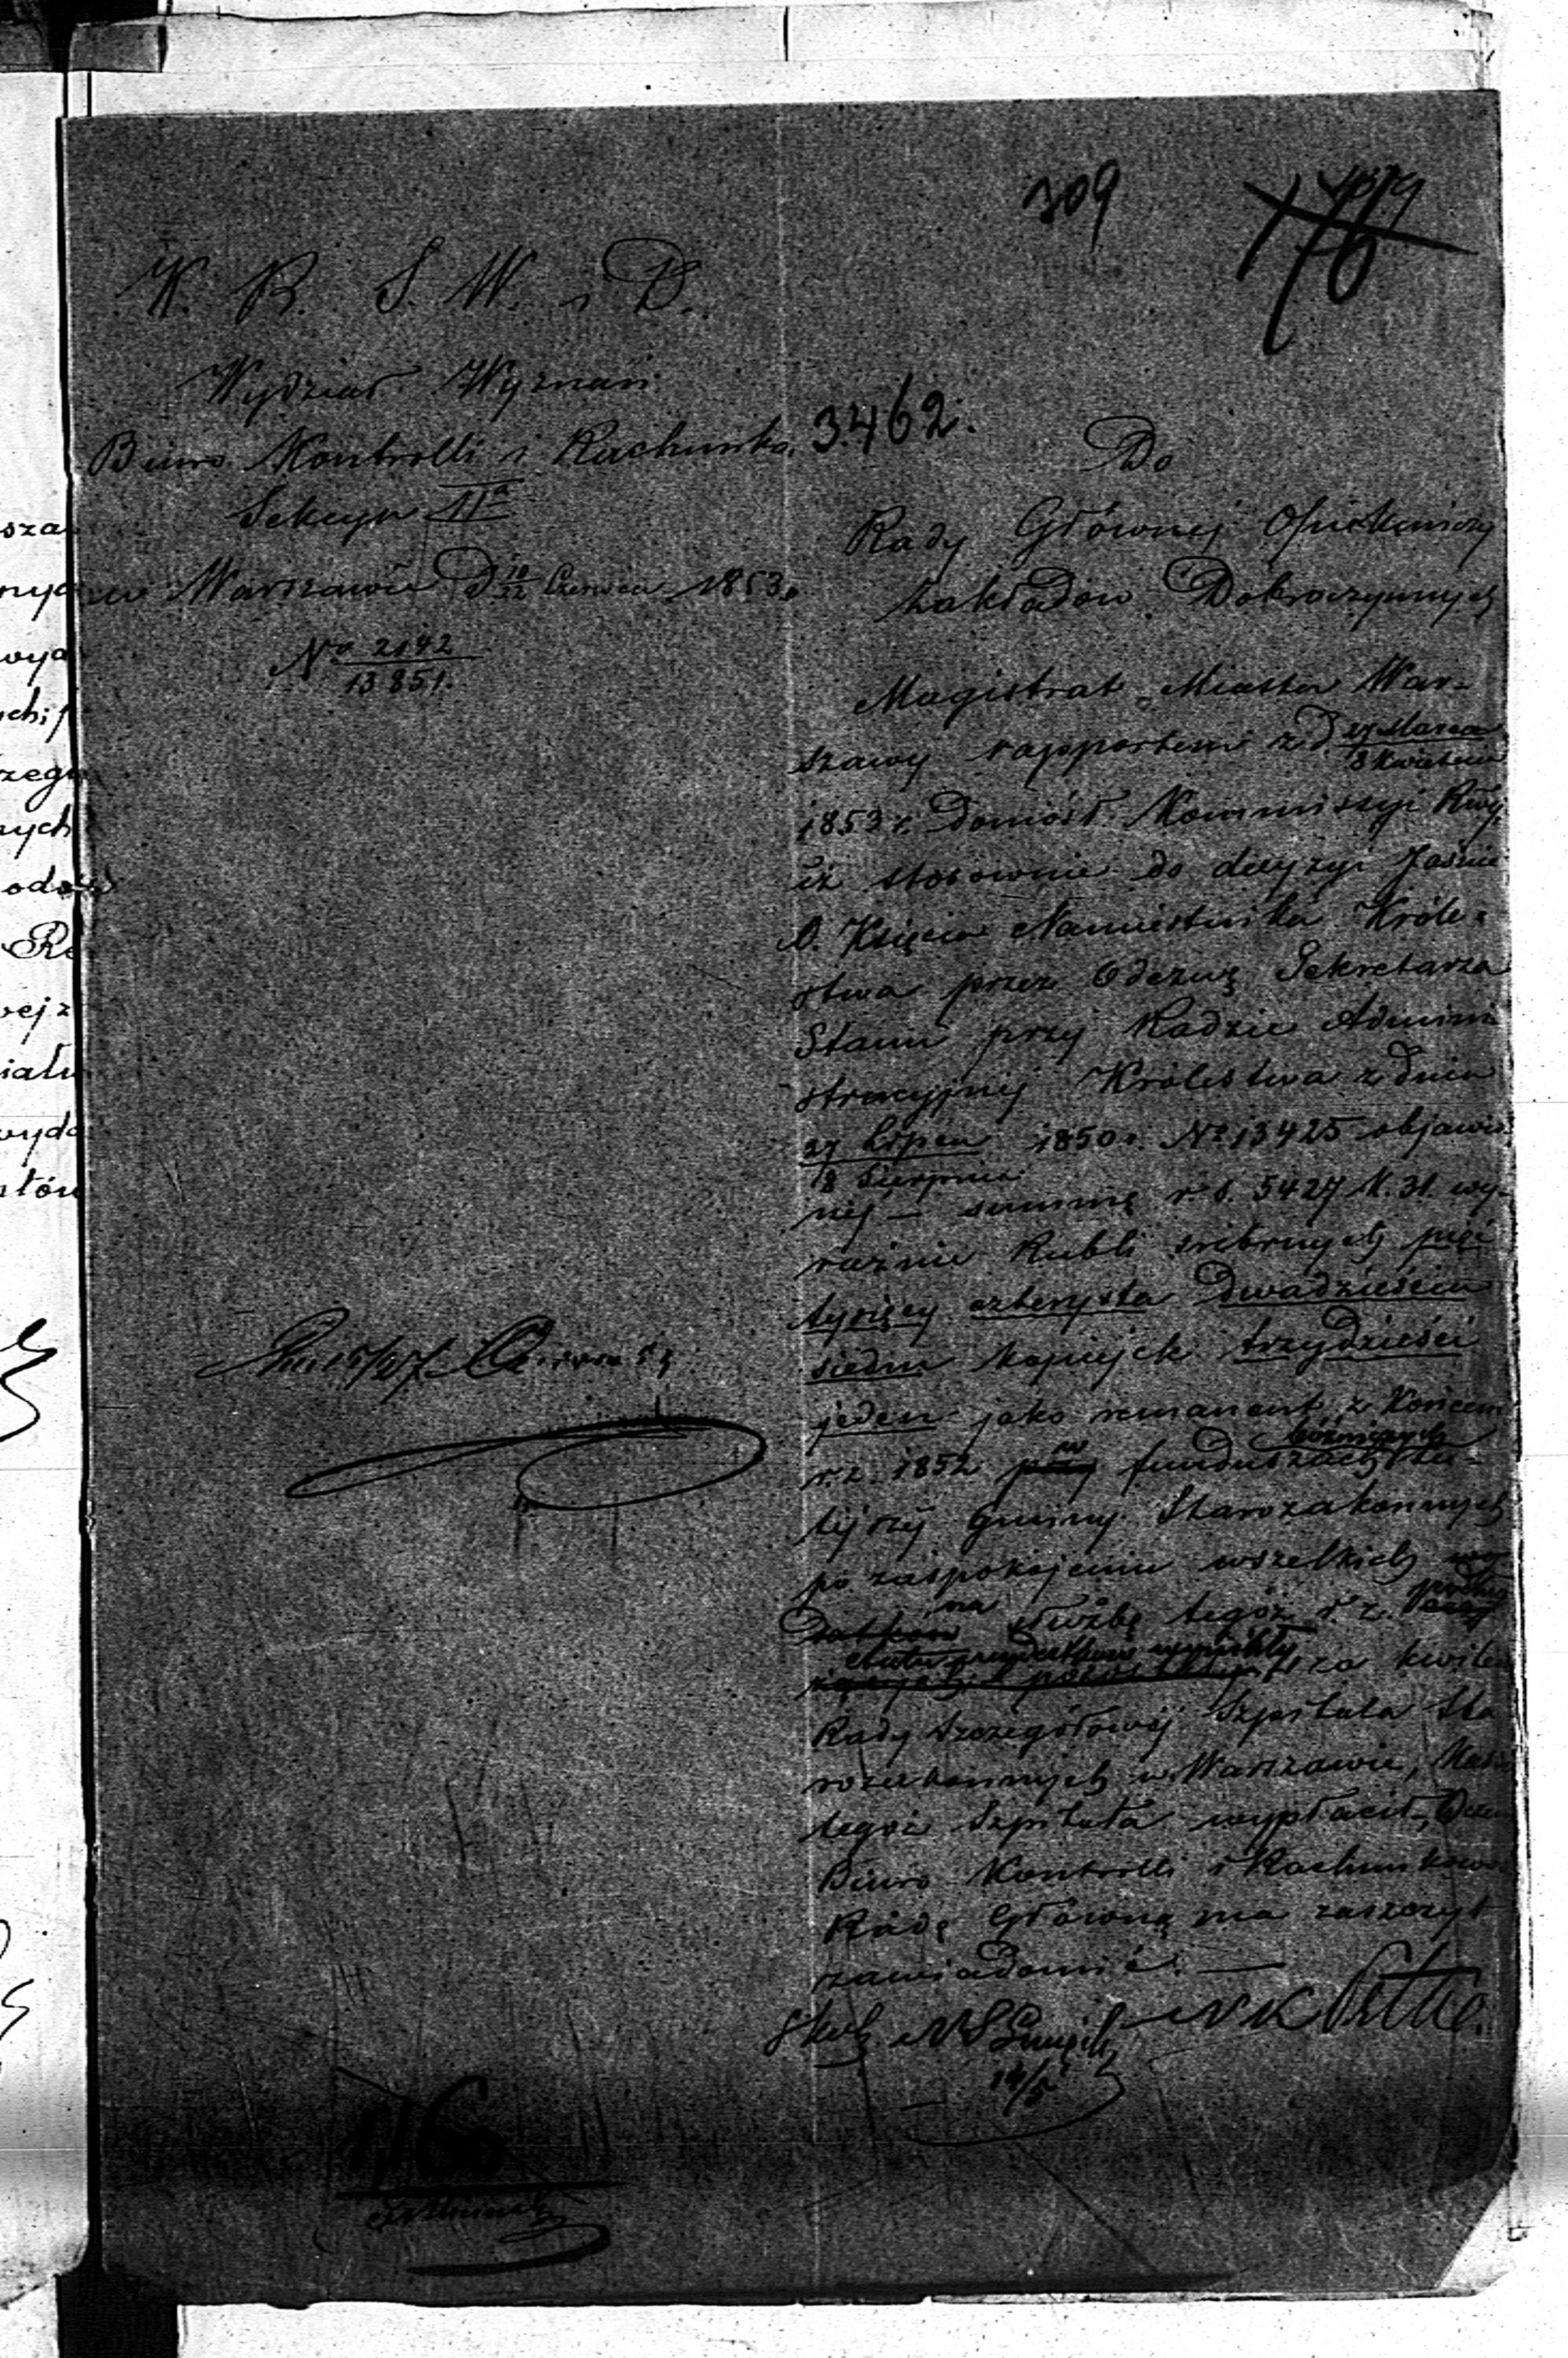 309
K. R. S. W. i D.
Wydział Wyznań
Biuro Kontrolli i Rachunko.
3462.
Sekcya II<sup>a</sup>
w Warszawie d 10/22 Czerwca 1853.
No 2142
13851.
Do
Rady Głównej Opiekuńczej
Zakładów Dobroczynnych
Magistrat Miasta War-
szawy rapportem z d 27 Marca
8 Kwietnia
1853 r. doniósł Kommissyi Rwy,
iż stosownie do decyzyi Jaśnie
O. Księcia Namiestnika Króle-
stwa przez Odezwę Sekretarza
Stanu przy Radzie Admini
stracyjnej Królestwa z dnia
27 Lipca 1850 r. No 13425 objawio
8 Sierpnia
nej — summę r. s. 5427 k. 31. wy-
raźnie Rubli srebrnych pięć
tysięcy czterysta dwadzieścia
siedm kopiejek trzydzieści
jeden jako remanent z końcem
bóżniczych
r. z. 1852 w funduszach tu-
tejszej Gminy Starozakonnych
po zaspokojeniu wszelkich
na służbę tegoż r. z.
etatu wydatków wynikły za kwitem
Rady Szczegółowej Szpitala Sta
rozakonnych w Warszawie, Kassie
tegoż Szpitala wypłacił, o czem
Biuro Kontrolli i Rachunkowo.
Radę Główną ma zaszczyt
zawiadomić. —
14/5